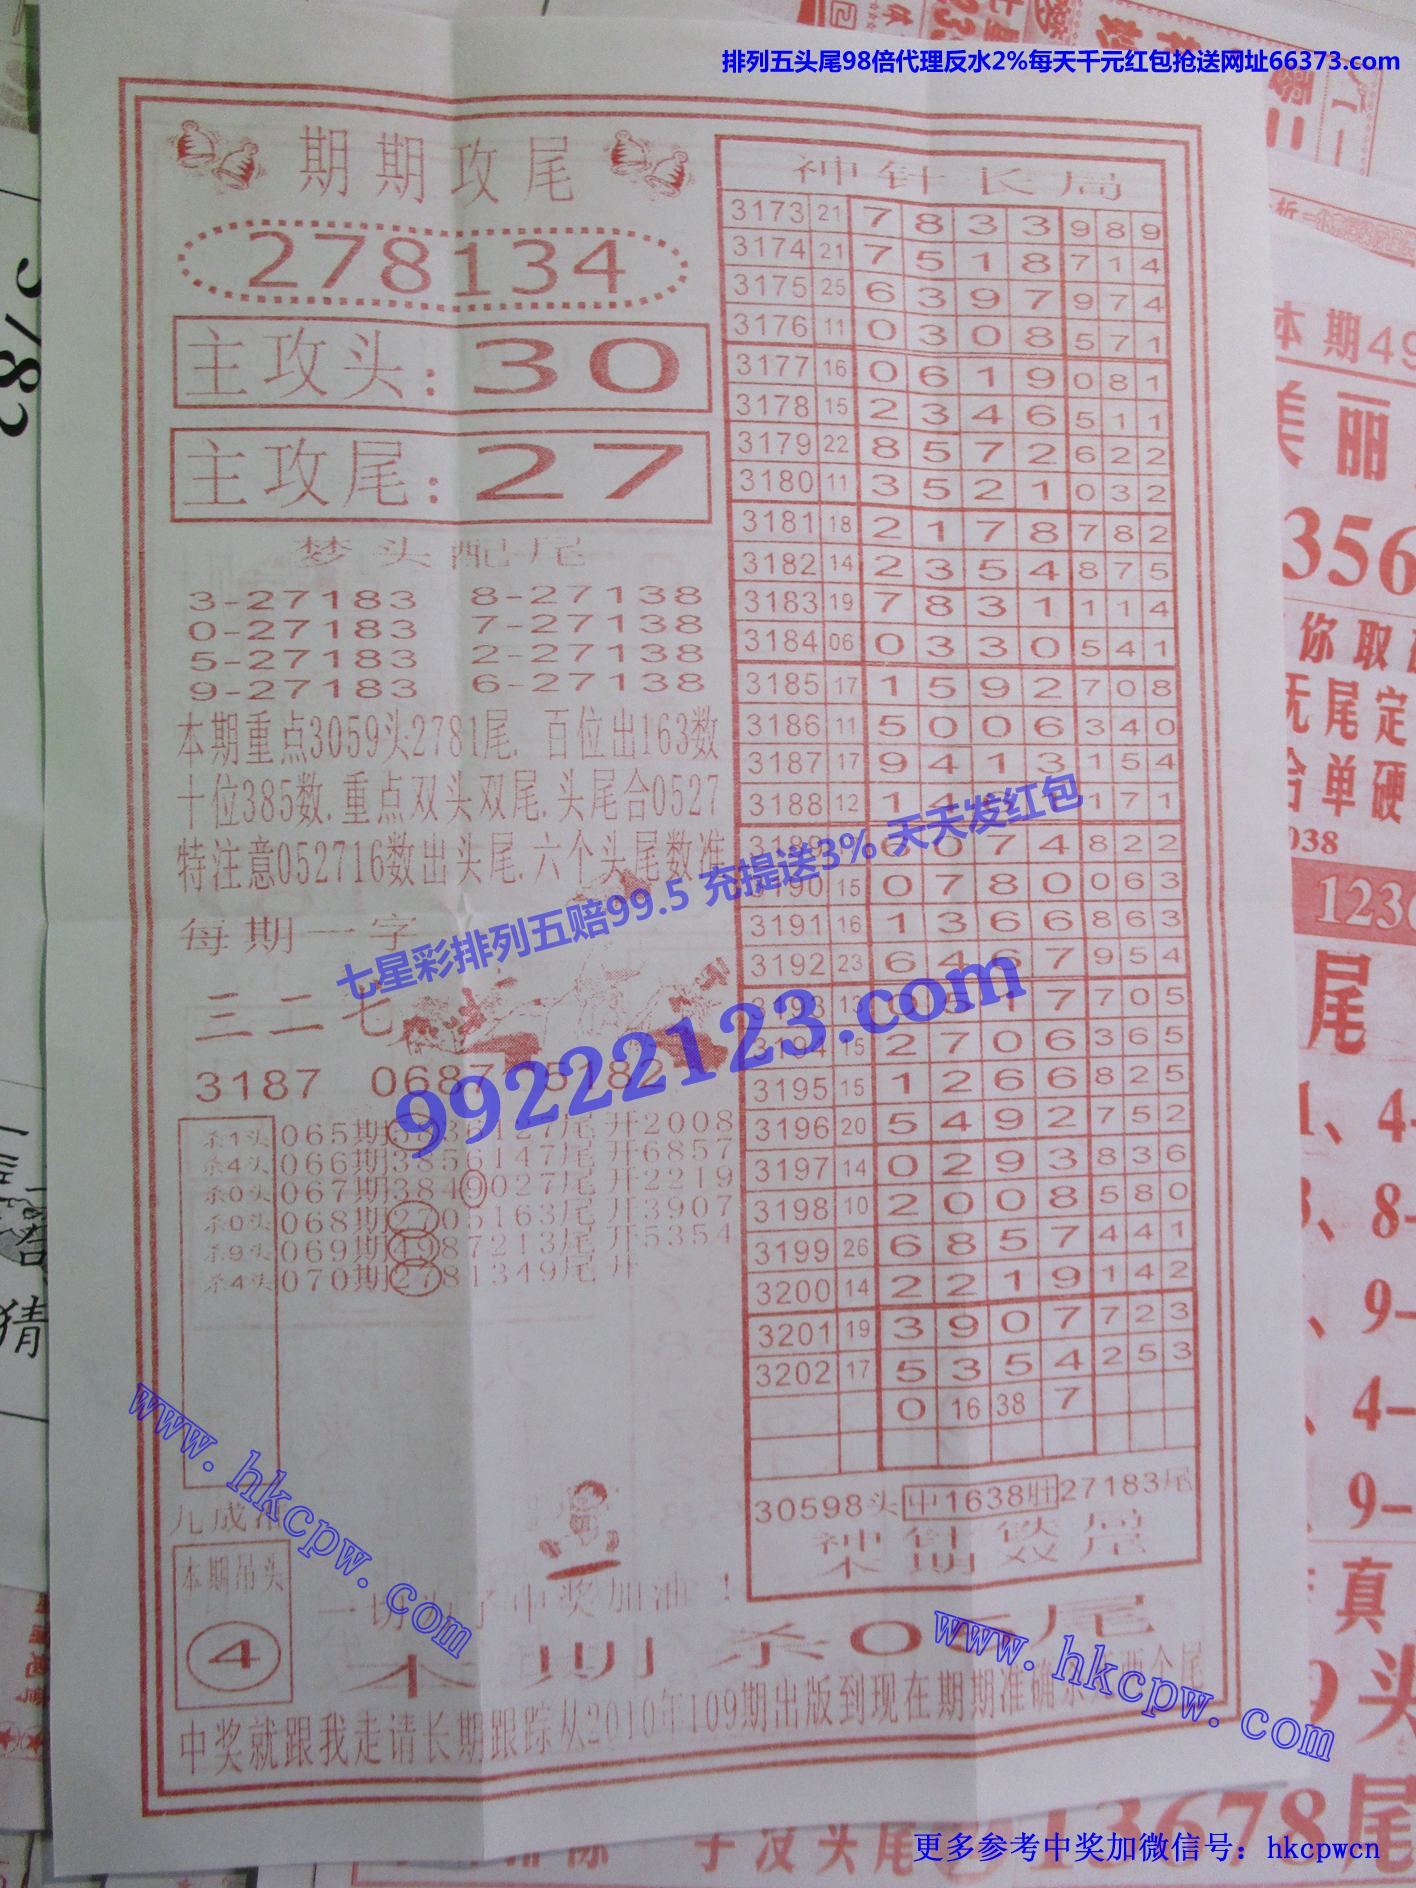 排列五头尾98倍代理反水2%每天千元红包抢送网址66373.com
期期攻尾
278134
主攻头：30
主攻尾：27
梦头配尾
3-27183 8-27138
0-27183 7-27138
5-27183 2-27138
9-27183 6-27138
本期重点3059头2781尾. 百位出163数
十位385数.重点双头双尾.头尾合0527
特注意052716数出头尾.六个头尾数准
每期一字
三二七
3187 0687 5182
杀1头 065期 36127尾 开2008
杀4头 066期3856147尾 开6857
杀0头 067期3849027尾 开2219
杀0头 068期2705163尾 开3907
杀9头 069期4987213尾 开5354
杀4头 070期2781349尾 开
九成
本期吊头
4
一切为了中奖加油！
本期杀05尾
中奖就跟我走请长期跟踪从2010年109期出版到现在期期准确杀
神针长局
3173 21 7 8 3 3 9 8 9
3174 21 7 5 1 8 7 1 4
3175 25 6 3 9 7 9 7 4
3176 11 0 3 0 8 5 7 1
3177 16 0 6 1 9 0 8 1
3178 15 2 3 4 6 5 1 1
3179 22 8 5 7 2 6 2 2
3180 11 3 5 2 1 0 3 2
3181 18 2 1 7 8 7 8 2
3182 14 2 3 5 4 8 7 5
3183 19 7 8 3 1 1 1 4
3184 06 0 3 3 0 5 4 1
3185 17 1 5 9 2 7 0 8
3186 11 5 0 0 6 3 4 0
3187 17 9 4 1 3 1 5 4
3188 12 1 4 1 7 1
3189 6 0 7 4 8 2 2
3190 15 0 7 8 0 0 6 3
3191 16 1 3 6 6 8 6 3
3192 23 6 4 6 7 9 5 4
3193 13 0 5 1 7 7 0 5
3194 15 2 7 0 6 3 6 5
3195 15 1 2 6 6 8 2 5
3196 20 5 4 9 2 7 5 2
3197 14 0 2 9 3 8 3 6
3198 10 2 0 0 8 5 8 0
3199 26 6 8 5 7 4 4 1
3200 14 2 2 1 9 1 4 2
3201 19 3 9 0 7 7 2 3
3202 17 5 3 5 4 2 5 3
0 16 38 7
30598头 中1638肚 27183尾
神针铁局
本期双尾
七星彩排列五赔99.5 充提送3% 天天发红包
99222123.com
www.hkcpw.com
www.hkcpw.com
本期49
美丽
356
你取
无尾定
单硬
038
1236
尾
1、4-
3、8-
、9-
4-
9-
真
9头
13678尾
子没头尾
猜
更多参考中奖加微信号：hkcpwcn